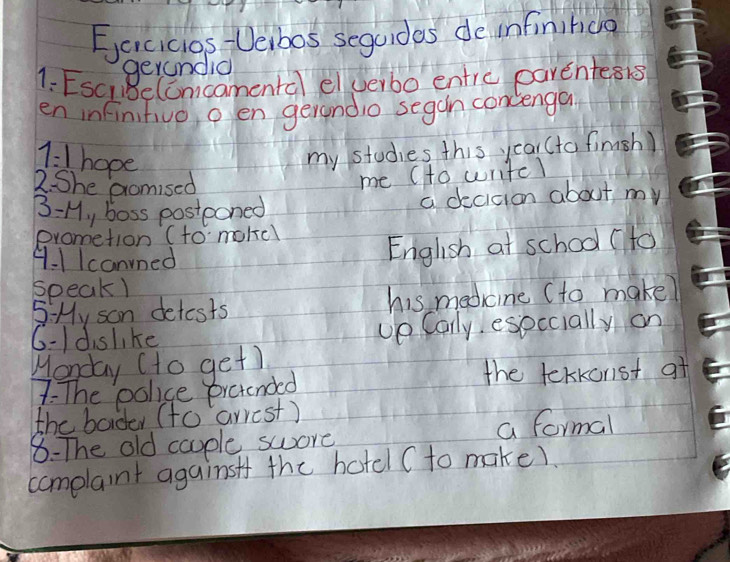 Ejercicios-Verbos seguidos de infinitivo
gerundio
1: Escribe (únicamente) el verbo entre paréntesis
en infinitivo o en gerundio según convenga
1:I hope my studies this year (to finish)
2-She promised me (to write)
3-My boss postponed a decicion about my
prometion (to make)
4-I learned English at school (to
speak)
5-My son detests his medicine (to make)
6-I dislike up Early. espccially on
Monday (to get).
7-The police pretended the tekkorist at
the border (to arrest)
8-The old couple swore a formal
complaint against the hotel (to make).